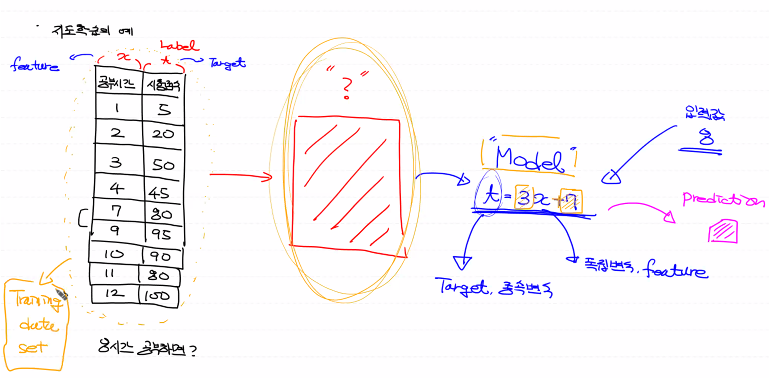 · 지도학습의 예
Label
feature x t Target
공부시간 시험점수
1 5
2 20
3 50
4 45
7 80
9 95
10 90
11 80
12 100
Training
data
set
8시간 공부하면?
"?"
"Model"
t = 3x+7
Target, 종속변수
독립변수, feature
입력값
8
prediction